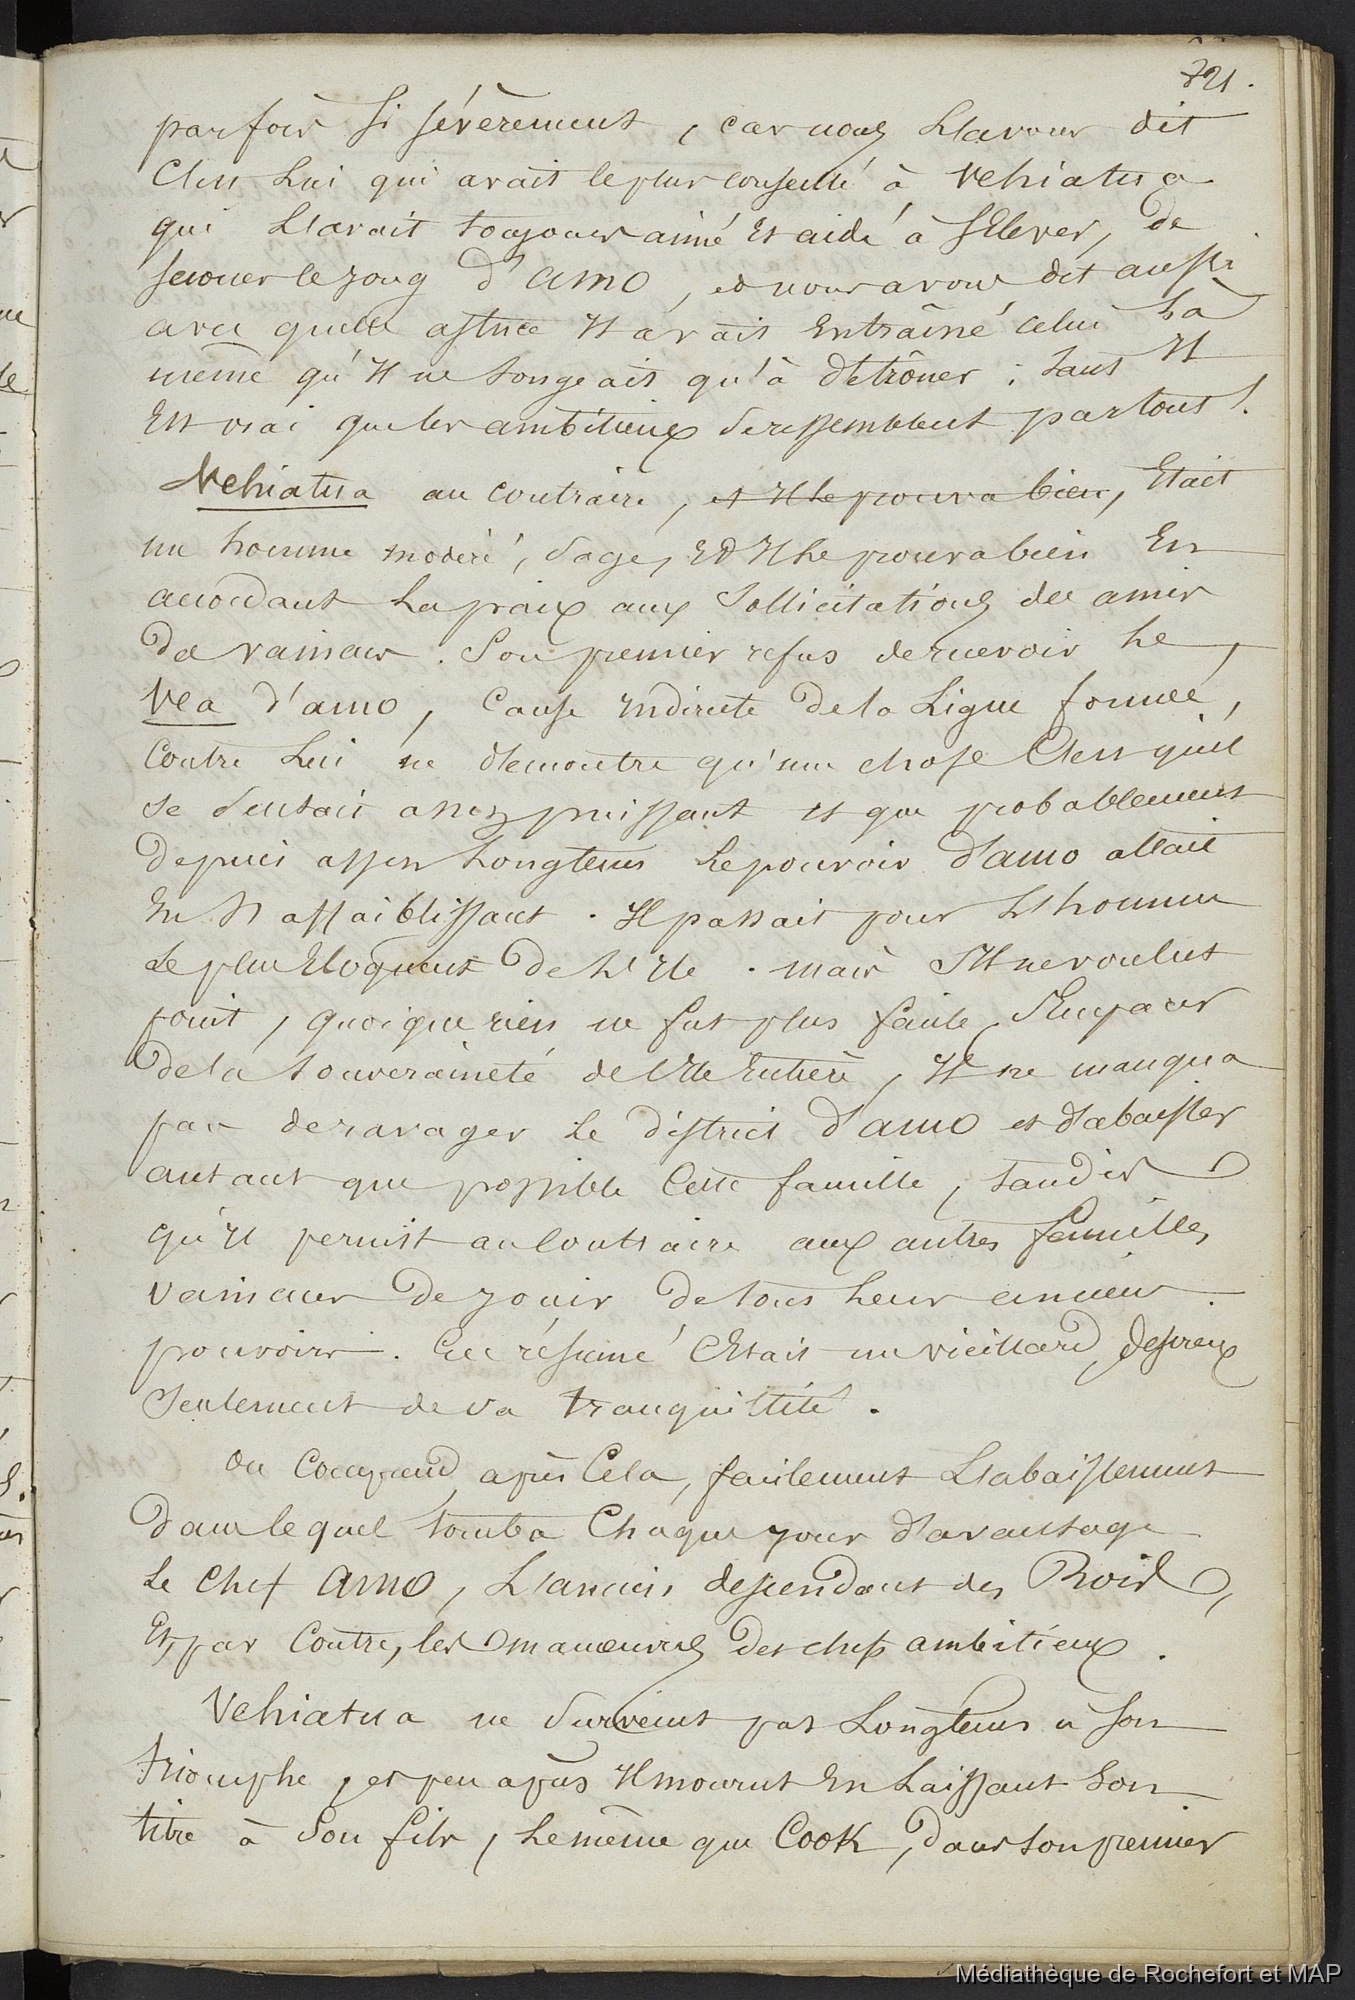 721.
parfois si sévèrement, car nous l'avons dit
C'est lui qui avait le plus conseillé à Vehiatua
qui l'avait toujours aimé et aidé à s'élever, de
secouer le joug d'amo, et nous avons dit aussi
avec quelle astuce il avait entraîné celui là
même qu'il ne songeait qu'à détrôner : tant il
est vrai que les ambitieux se ressemblent partout !
Vehiatua au contraire, et il le prouva bien, était
un homme modéré, sage, et il le prouva bien en
accordant la paix aux sollicitations des amis
des vaincus. Son premier refus de recevoir le
Vea d'amo, cause indirecte de la ligue formée,
contre lui ne démontre qu'une chose c'est qu'il
se sentait assez puissant et que probablement
depuis assez longtems le pouvoir d'amo allait
en s'affaiblissant. Il passait pour l'homme
le plus éloquent de l'île. mais s'il ne voulut
point, quoique rien ne fut plus facile, s'emparer
de la souveraineté de l'île entière, il ne manqua
pas de ravager le district d'amo et d'abaisser
autant que possible cette famille, tandis
qu'il permit au contraire aux autres familles
vaincues de jouir de tous leurs anciens
pouvoirs. En résumé c'était un vieillard désireux
seulement de sa tranquillité.
On comprend, après cela, facilement l'abaissement
dans lequel tomba chaque jour d'avantage
le chef amo, l'ancien descendant des Rois,
et, par contre, les manoeuvres des chefs ambitieux.
Vehiatua ne survécut pas longtems à son
triomphe, et peu après il mourut en laissant son
titre à son fils, le même que Cook, dans son premier
Médiathèque de Rochefort et MAP